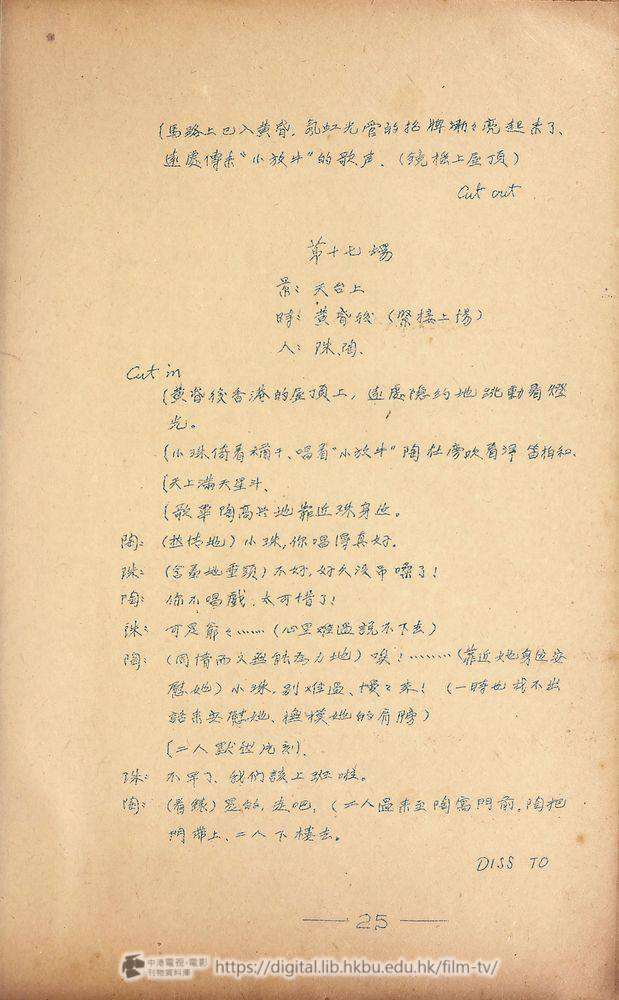 (馬路上已入黄昏，氖虹光管的招牌漸々亮起来了、
遠處傳来“小放牛”的歌声、(鏡摇上屋頂)
Cut out
第十七場
景：天台上
時：黄昏後（緊接上場）
人：珠、陶、
Cut in
(黄昏後香港的屋頂上，遠處隐約地跳動着燈
光。
(小珠倚着欄干、唱着“小放牛”陶在旁吹着洋笛相和、
(天上满天星斗、
(歌畢陶高兴地靠近珠身边。
陶：（热情地）小珠，你唱得真好。
珠：（含羞地垂頭）不好，好久没吊嗓了！
陶：你不唱戲、太可惜了！
珠：可是爺々……（心里难過説不下去）
陶：（同情而又無能為力地）唉！………（靠近她身边安
慰她）小珠，别难過、慢々来！（一時也找不出
話来安慰她、撫摸她的肩膀）
(二人默然片刻、
珠：不早了、我們該上班啦。
陶：（看錶）是的，走吧，（二人過来至陶寓門前，陶把
門帶上、二人下楼去。
DISS TO
25
中港電視·電影
刊物資料庫
https://digital.lib.hkbu.edu.hk/film-tv/